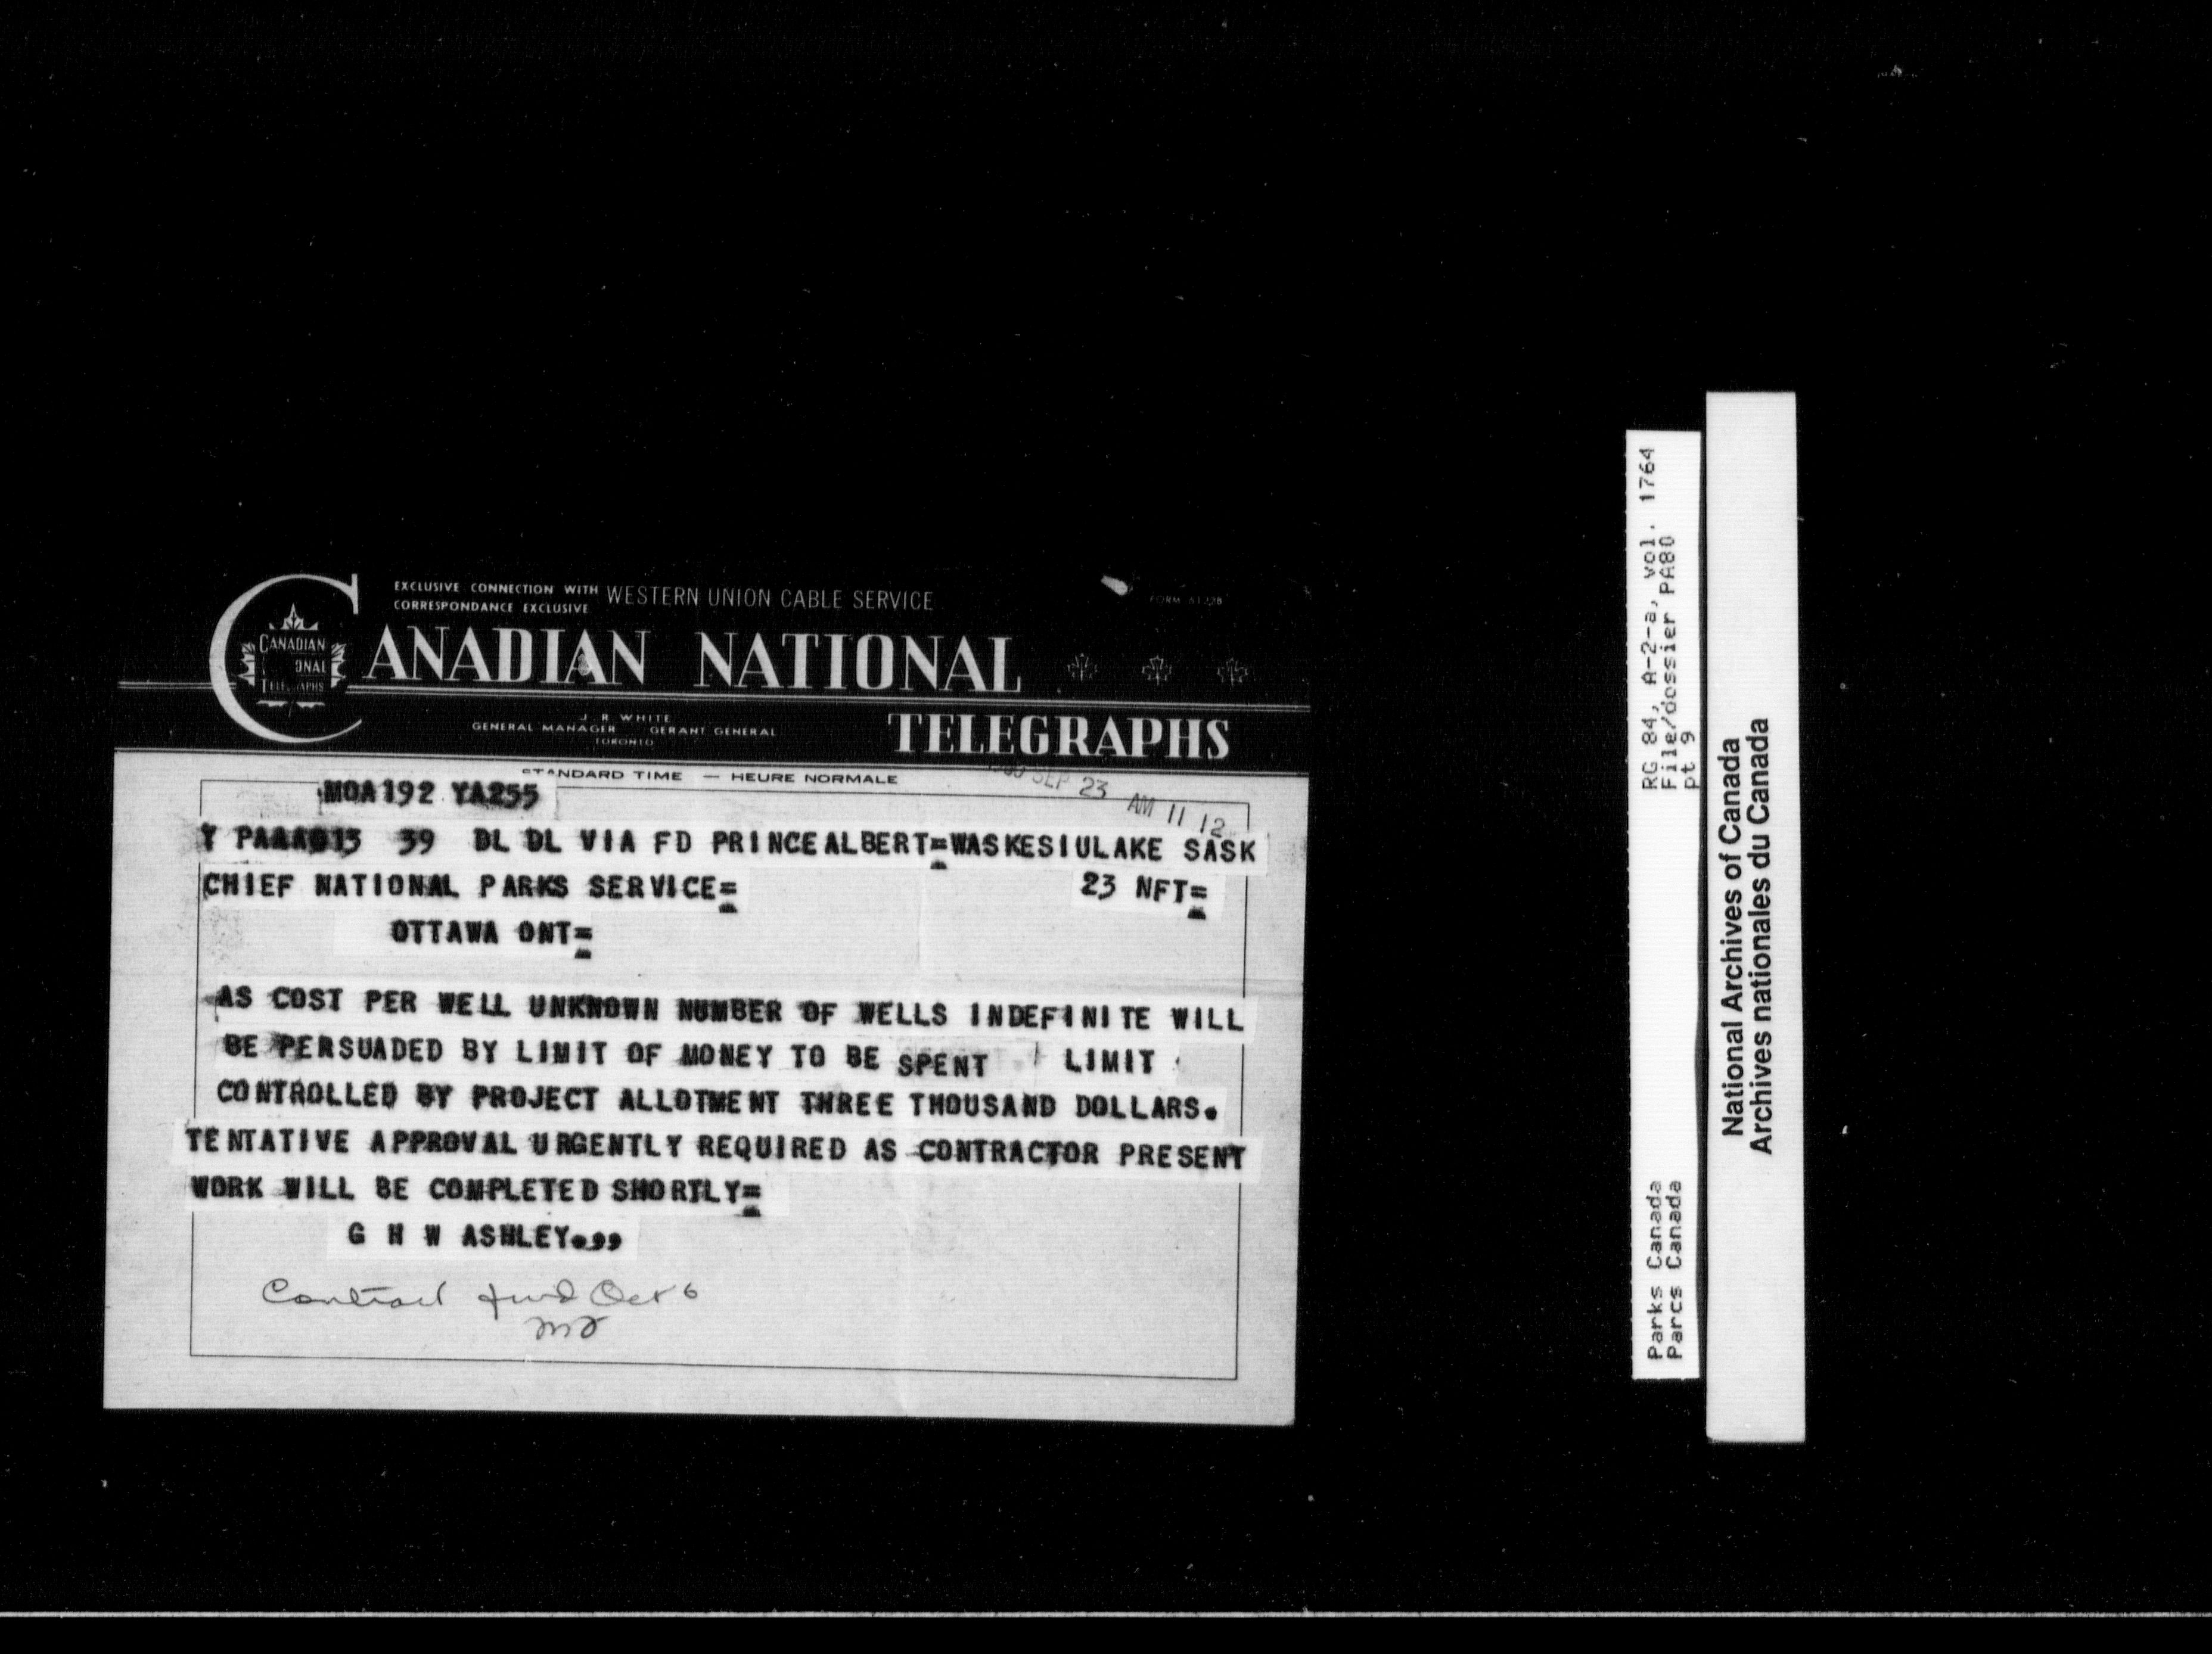 EXCLUSIVE CONNECTION WITH WESTERN UNION CABLE SERVICE
CORRESPONDANCE EXCLUSIVE
CANADIAN NATIONAL
TELEGRAPHS
J. R. WHITE
GENERAL MANAGER GERANT GENERAL
TORONTO
STANDARD TIME — HEURE NORMALE
SEP 23 AM 11 12
MOA192 YA255
Y PAAA013 39 DL DL VIA FD PRINCEALBERT=WASKESIULAKE SASK
CHIEF NATIONAL PARKS SERVICE= 23 NFT=
OTTAWA ONT=
AS COST PER WELL UNKNOWN NUMBER OF WELLS INDEFINITE WILL
BE PERSUADED BY LIMIT OF MONEY TO BE SPENT LIMIT
CONTROLLED BY PROJECT ALLOTMENT THREE THOUSAND DOLLARS.
TENTATIVE APPROVAL URGENTLY REQUIRED AS CONTRACTOR PRESENT
WORK WILL BE COMPLETED SHORTLY=
G H W ASHLEY.,,
Contract fwd Oct 6
RG 84, A-2-a, vol. 1764
File/dossier PA80
pt 9
Parks Canada
Parcs Canada
National Archives of Canada
Archives nationales du Canada